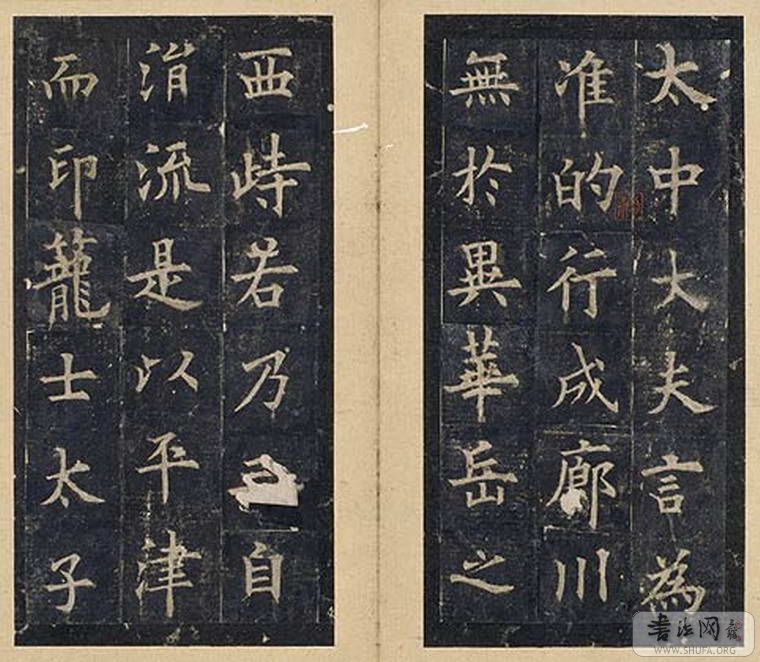 太中大夫言為
准的行成廊川
無於異華岳之
西峙若乃自
涓流是以平津
而印蘢士太子
书法网
WWW.SHUFA.ORG